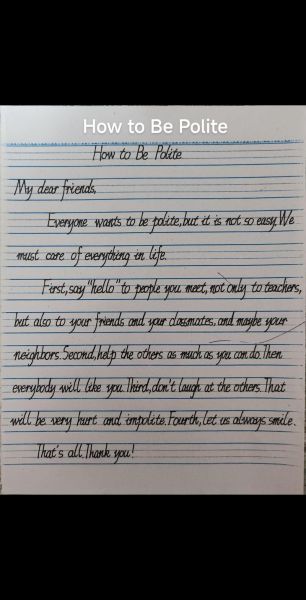 How to Be Polite
How to Be Polite
My dear friends,
Everyone wants to be polite, but it is not so easy. We
must care of everything in life.
First, say "hello" to people you meet, not only to teachers,
but also to your friends and your classmates, and maybe your
neighbors. Second, help the others as much as you can do. Then
everybody will like you. Third, don't laugh at the others. That
will be very hurt and impolite. Fourth, let us always smile.
That's all. Thank you!